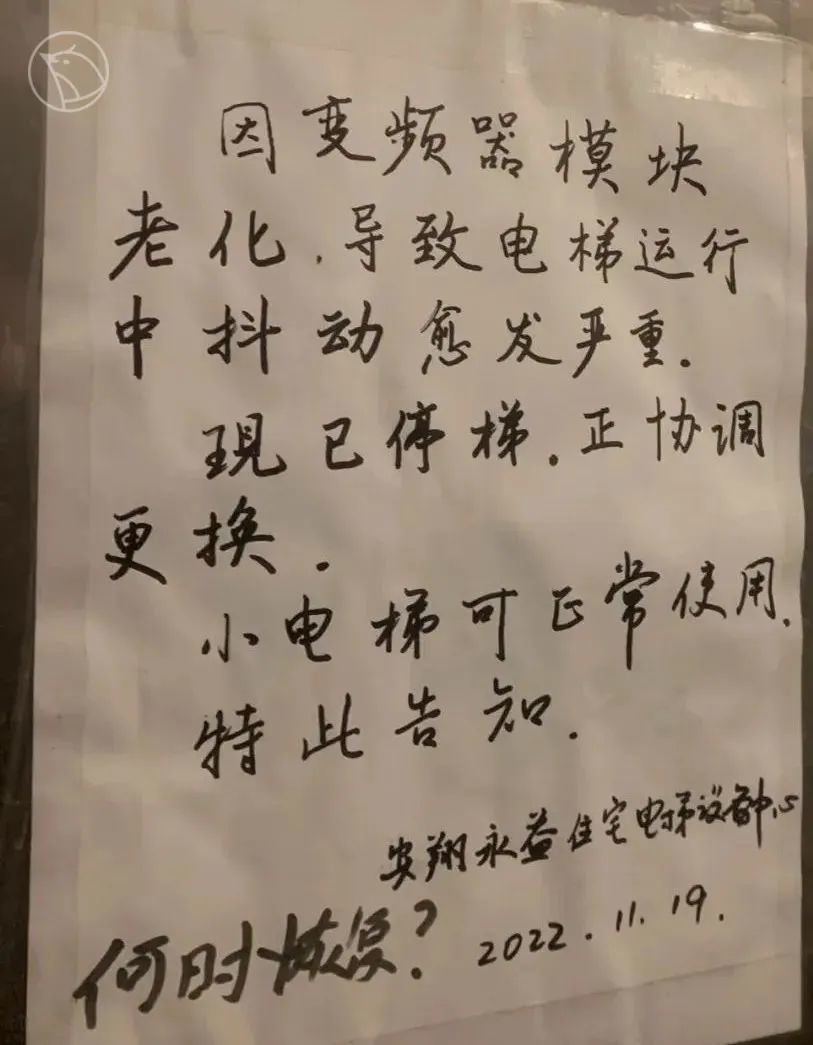 因变频器模块
老化.导致电梯运行
中抖动愈发严重.
现已停梯.正协调
更换.
小电梯可正常使用.
特此告知.
安翔永益住宅电梯设备中心
2022.11.19.
何时恢复?